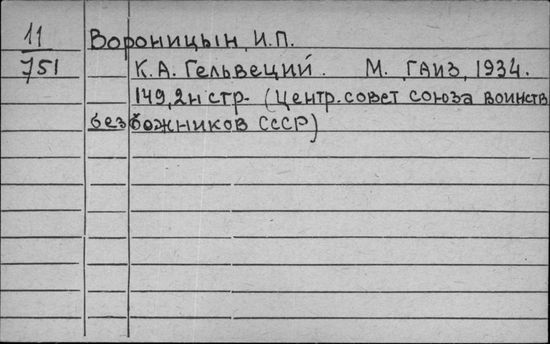 11 Вороницын, И.П.
751 К.А. Гельвеций. М. ГАИЗ, 1934.
149, 2н стр. (Центр. совет союза воинств
безбожников СССР)